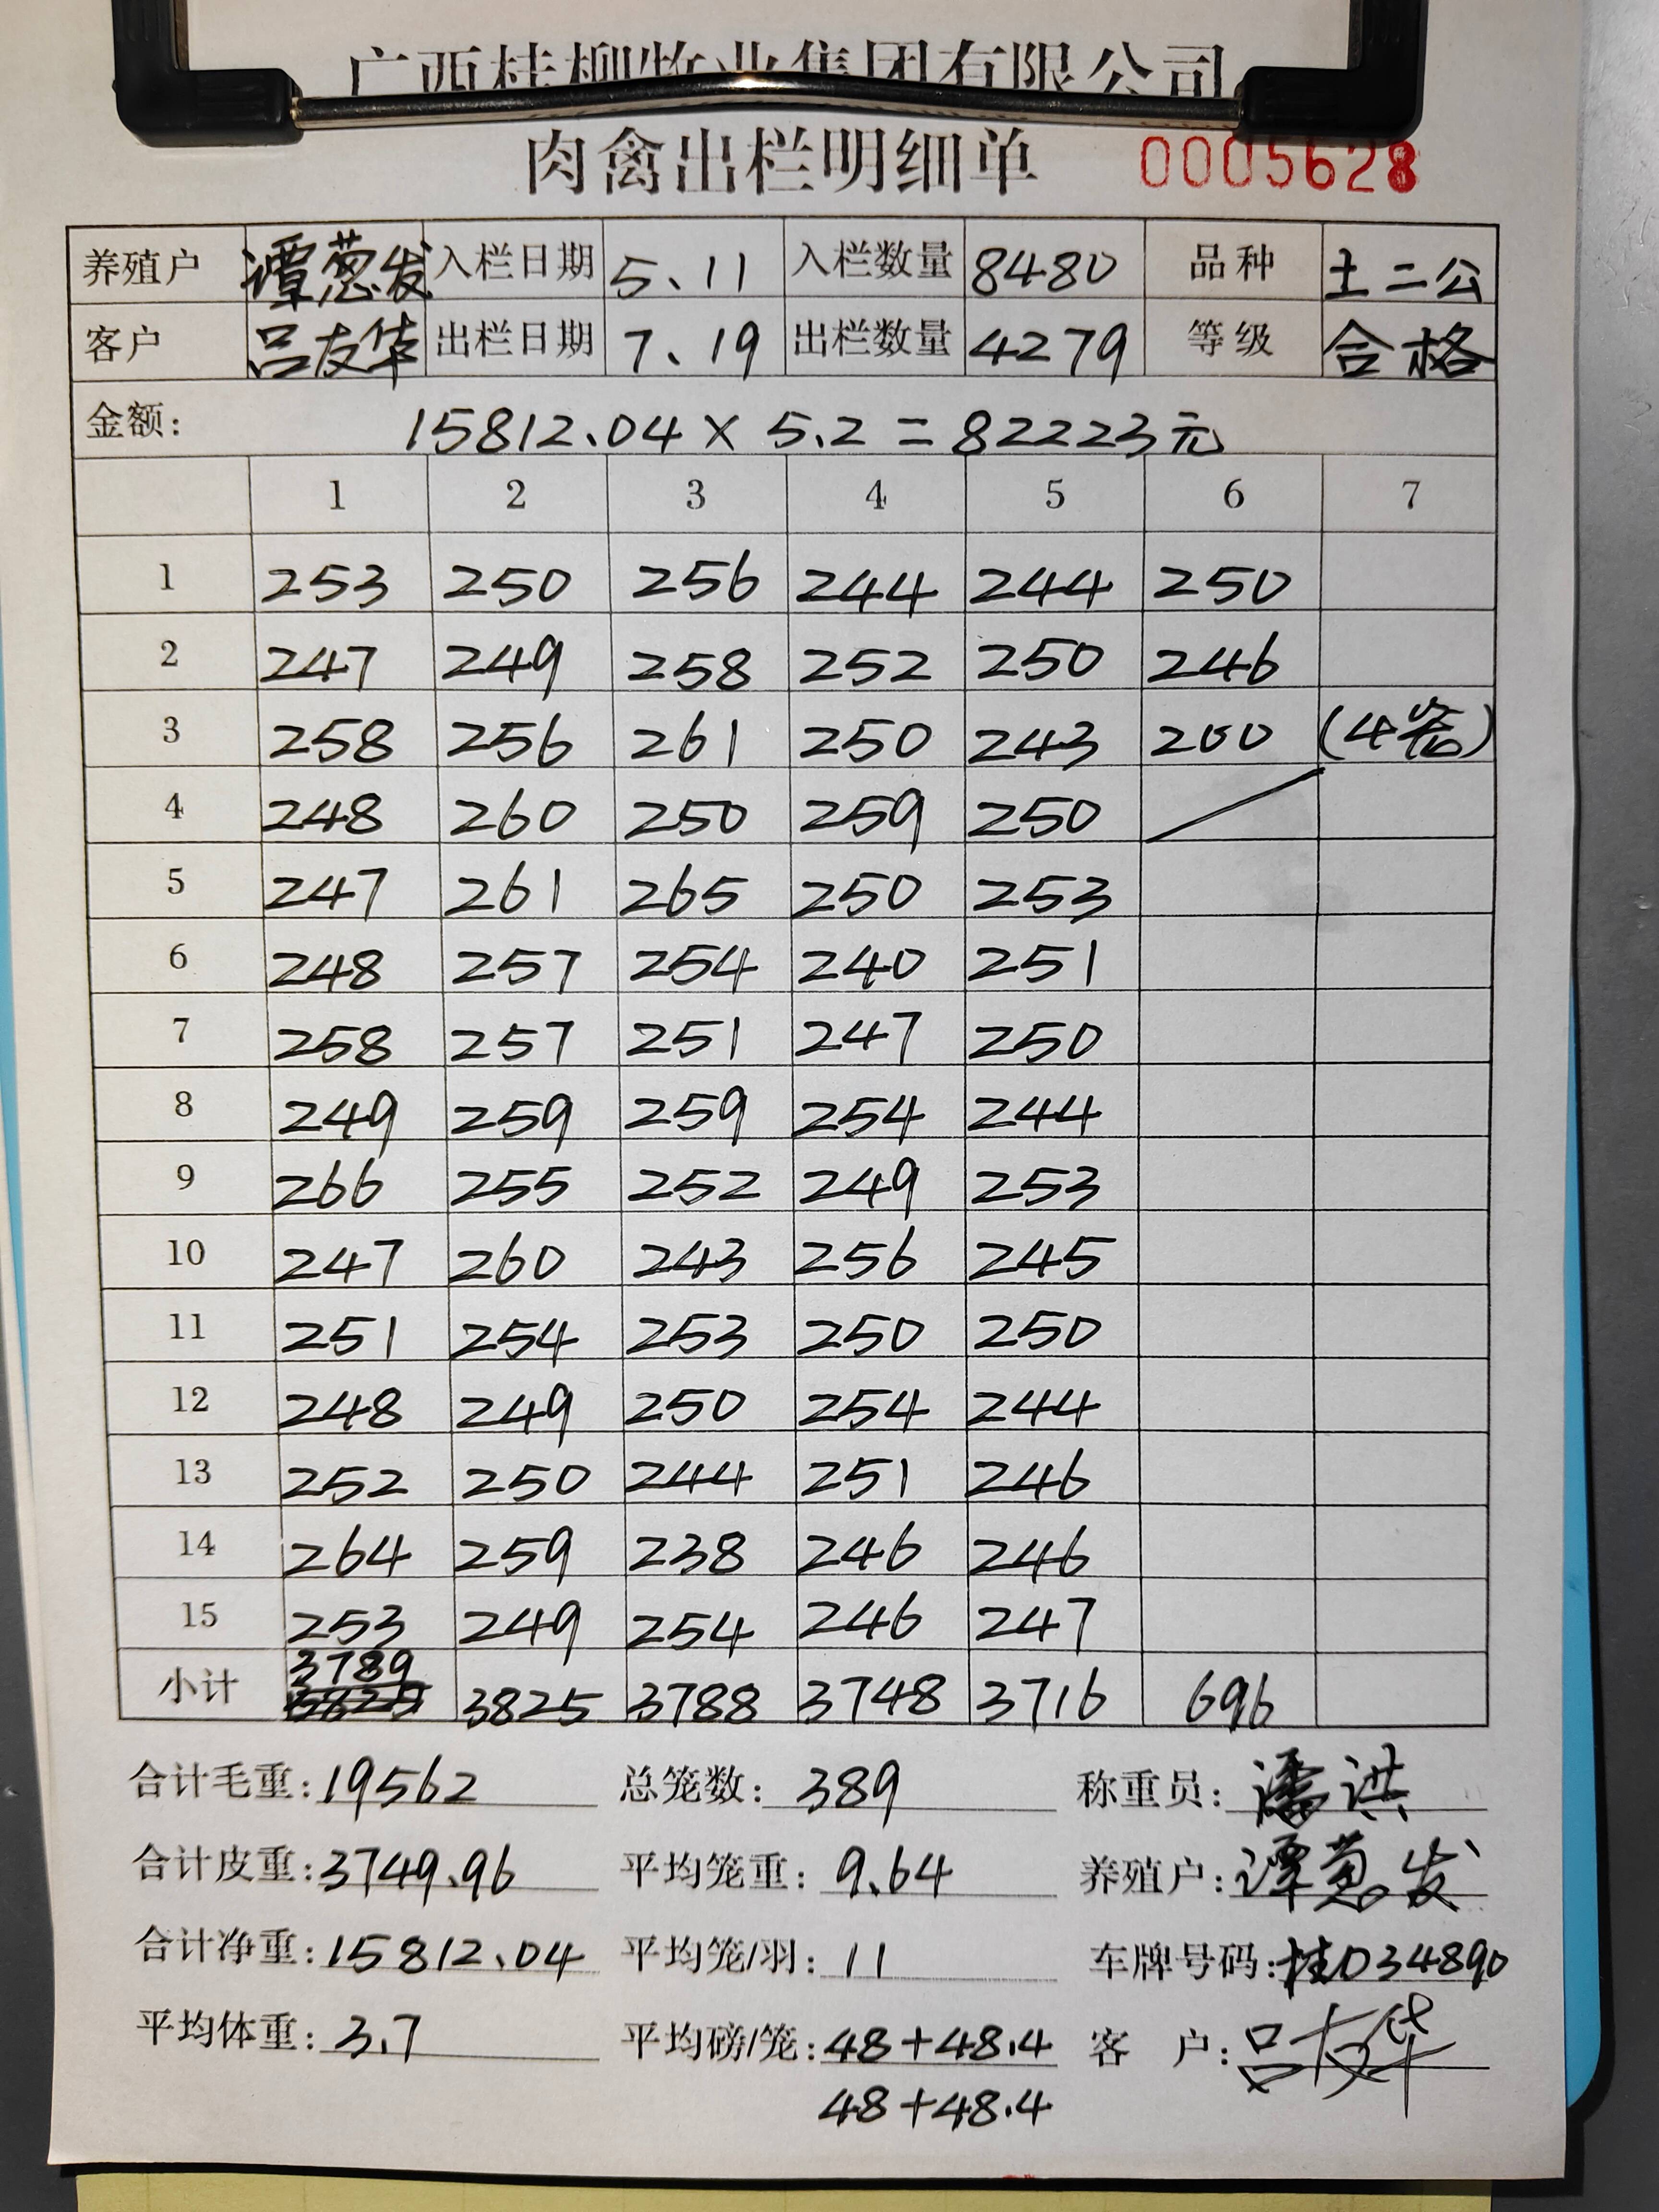 广西桂柳牧业集团有限公司
肉禽出栏明细单 0005628
养殖户 谭葱发 入栏日期 5、11 入栏数量 8480 品种 土二公
客户 吕友华 出栏日期 7、19 出栏数量 4279 等级 合格
金额: 15812.04 × 5.2 = 82223元
1 2 3 4 5 6 7
1 253 250 256 244 244 250
2 247 249 258 252 250 246
3 258 256 261 250 243 200 (4笼)
4 248 260 250 259 250
5 247 261 265 250 253
6 248 257 254 240 251
7 258 257 251 247 250
8 249 259 259 254 244
9 266 255 252 249 253
10 247 260 243 256 245
11 251 254 253 250 250
12 248 249 250 254 244
13 252 250 244 251 246
14 264 259 238 246 246
15 253 249 254 246 247
小计 3789 3825 3788 3748 3716 696
合计毛重: 19562 总笼数: 389 称重员: 潘洪
合计皮重: 3749.96 平均笼重: 9.64 养殖户: 谭葱发
合计净重: 15812.04 平均笼/羽: 11 车牌号码: 桂D34890
平均体重: 3.7 平均磅/笼: 48+48.4 客 户: 吕友华
48+48.4